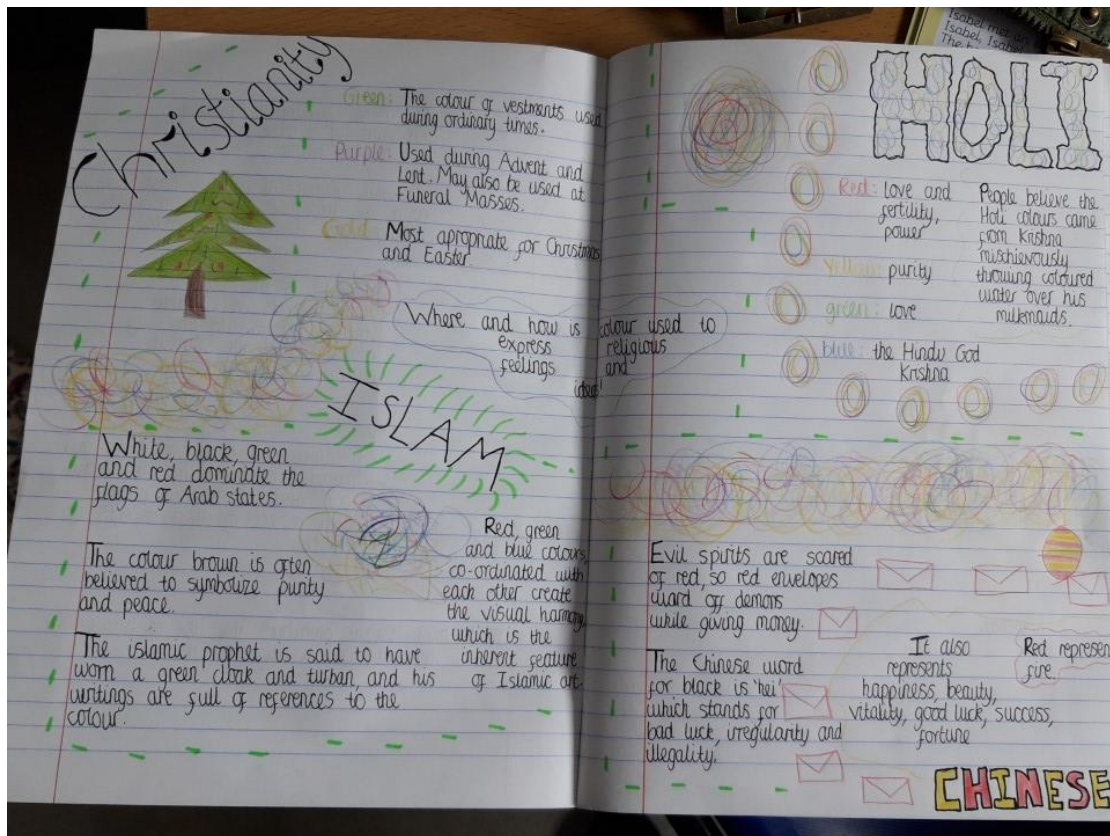 Christianity
Green: The colour of vestments used
during ordinary times.
Purple: Used during Advent and
Lent. May also be used at
Funeral Masses.
Gold: Most apropriate for Christmas
and Easter.
Where and how is colour used to
express religious
feelings and
ISLAM
White, black, green
and red dominate the
flags of Arab states.
The colour brown is often
believed to symbolize purity
and peace.
The islamic prophet is said to have
worn a green cloak and turban, and his
writings are full of references to the
colour.
Red, green
and blue colours,
co-ordinated with
each other create
the visual harmony,
which is the
inherent feature
of Islamic art.
Isabel met an
Isabel, Isabel
HOLI
Red: love and
fertility,
power
Yellow: purity
green: love
blue: the Hindu God
Krishna
People believe the
Holi colours came
from Krishna
mischievously
throwing coloured
water over his
milkmaids.
Evil spirits are scared
of red, so red envelopes
ward off demons
while giving money.
The Chinese word
for black is 'hei'
which stands for
bad luck, irregularity and
illegality.
It also
represents
happiness, beauty,
vitality, good luck, success,
fortune
Red represen
fire.
CHINESE